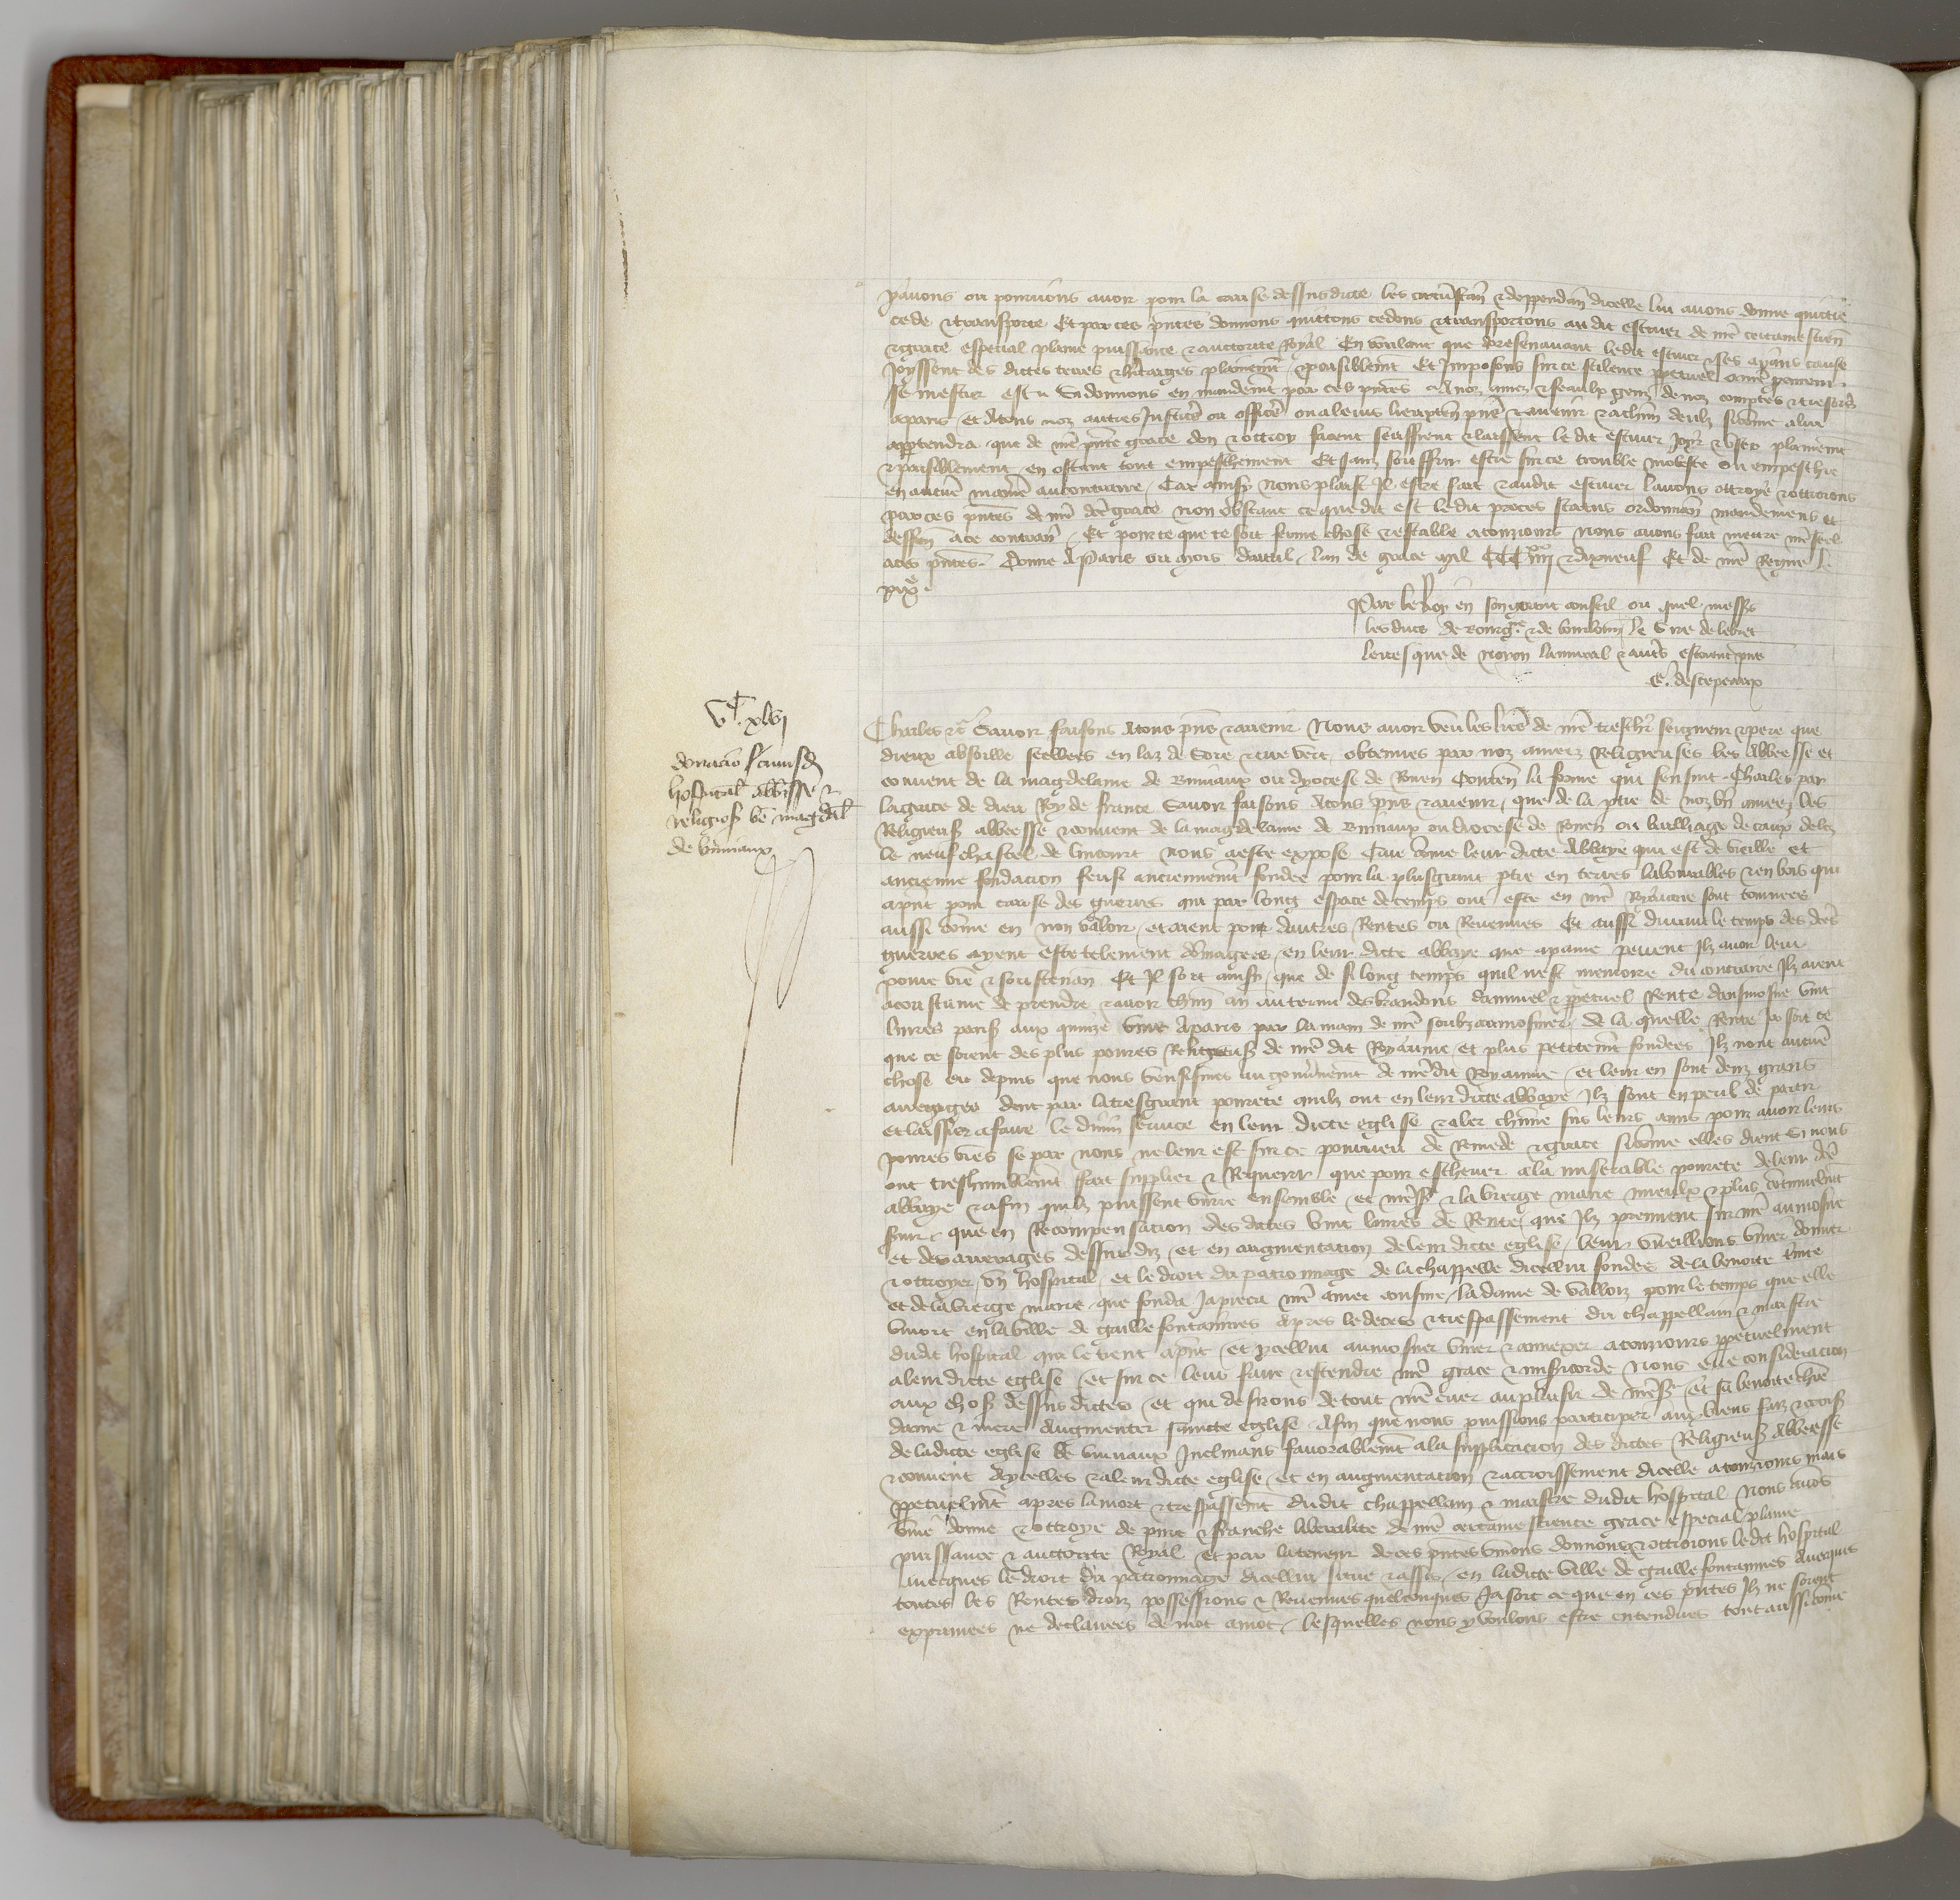 yavons ou pourrions avoir pour la cause dessusdicte les circunstan et deppendan dicelle lui avons donne quictie
cede et transporte Et par ces pntes donnons quittons cedons et transportons au dit escuier de nre certaine scien
et grace especial plaine puissance et auctorite Royal En voulant que doresenavant ledit escuier et ses ayans cause
Joyssent des dictes terres et heritaiges plainemt et paisiblemt Et Imposons sur ce silence perpetuel a nre procureur
se mestier est Si donnons en mandemt par ces pntes A noz amez et feaulx gens de noz comptes et tresors
aparis et Atous noz autres Justic ou offic ou a leurs lieuxten pns et avenir et achun deulz si come a lui
appartendra que de nre pnte grace don et ottroy facent seuffrent et laissent le dit escuier Joyr et user plainemt
et paisiblement en ostant tout empeschement Et sanz souffrir estre sur ce trouble moleste ou empeschie
en aucune maniere au contraire Car ainsy nous plaist Il estre fait et audit escuier lavons ottroye et ottroions
par ces pntes de nre dce grace non obstant ce que dit est ledit proces status ordonnan mandemens et
deffen a ce contrair Et pour ce que ce soit ferme chose et estable atouzjours nous avons fait mettre nre scel
aces pntes Donne A Paris ou mois davril lan de grace mil CCC iiii xx et dixneuf Et de nre Regne le
xix e
Par le Roy en son grant conseil ou quel messrs
les ducs de bourgne et de bourbonn le Sire de lebret
levesque de noyon lamiral et autrs estoient pns
E. descepeaux
Vc xlvi
donacio cuiusd
hospital abbisse et
religios be magdal
de biviaux
Charles etc Savoir faisons Atous pns et avenir Nous avoir veu les lres de nre treschr seigneur et pere que
dieux absoille seellees en laz de soye et cire vert obtenues par noz amees Religieuses les Abbeesse et
couvent de la magdelaine de Biviaux ou dyocese de Rouen Conten la forme qui sensuit Charles par
la grace de dieu Roy de france Savoir faisons Atous pns et avenir que de la ptie de noz bn amees les
Religieus abbeesse et couvent de la magdelaine de Biviaux ou diocese de Rouen ou bailliage de caux delez
le neufchastel de lincourt nous a este expose Que come leur dicte Abbaye qui est de vieille et
ancienne fondacion feust anciennemt fondee pour la plusgrant ptie en terres labourables et en bois qui
apnt pour cause des guerres qui par long espace de temps ont este en nre Royaume sont tournees
aussi come en non valoir et aient pou dautres Rentes ou Revenues Et aussi durant le temps des des
guerres ayent este telement domagees en leur dicte abbaye que apaine peuent Ilz avoir leur
povre vie et soustenan Et Il soit ainsy que de si long temps quil nest memoire du contraire Ilz aient
acoustume de prendre et avoir chun an au terme des brandons dannuel et ppetuel Rente daumosne vint
livres paris aux quinze vins Aparis par la main de nre soubzaumosnier de la quelle Rente Ja soit ce
que ce soient des plus povres Religieus de nre dit Royaume et plus petitemt fondees Ilz nont aucune
chose eu depuis que nous venismes au gouvnemt de nredit Royaume et leur en sont deuz grans
arrerages dont par la tresgrant povrete quilz ont en leur dicte abbaye Ilz sont en peril de partir
et laissier afaire le divin service en leur dicte eglise et aler chune sus leurs amis pour avoir leurs
povres vies se par nous ne leur est sur ce pourveu de Remede et grace si come elles dient Si nous
ont treshumblemt fait supplier et Requerir que pour eschever a la miserable povrete deleur de
abbaye et afin quilz puissent vivre ensemble et nresr et la vierge marie mieulx et plus continuelmt
servir que en Recompensacion des dictes vint livres de Rente que Ilz prennent sur nre aumosne
et des arrerages dessus diz et en augmentation de leur dicte eglise leur vueillions unir donner
et ottroyer un hospital et le droit du patronnage de la chappelle dicellui fondee de la benoite trinite
et de la vierge marie que fonda Japieca nre amee cousine la dame de Valloiz pour le temps que elle
vivoit en la ville de gaillefontaines apres le deces et trespassement du chappellain et maistre
dudit hospital qui le tient apnt et ycellui aumosner unir et annexer atouzjours ppetuelment
a leur dicte eglise et sur ce leur faire et estendre nre grace et misericorde Nous eue consideracion
aux chos dessus dictes et qui desirons de tout nre cuer au plaisir de nresr et sa benoite chre
dame et mere Augmenter saincte eglise Afin que nous puissions participer aux biens faiz et orois
de ladicte eglise de biviaux Inclinans favorablemt ala supplicacion des dictes Religieus Abbeesse
et couvent Aycelles et a leur dicte eglise et en augmentation et accroissement dicelle atouzjours mais
ppetuelmt apres la mort et trespassemt dudit chappellain et maistre dudit hospital Nous avos
uni donne et ottroye de pure et franche liberalite de nre certaine science grace especial plaine
puissance et auctorite Royal et par la teneur de ces pntes unions donnons et ottroions ledit hospital
Avecques le droit du patronnage dicellui situe et assis en ladicte ville de gaillefontaines Avecques
toutes les Rentes droiz possessions et Revenues quelconques Ja soit ce que en ces pntes Ilz ne soient
exprimees ne declairees de mot amot lesquelles nous y voulons estre entendues tout aussi come